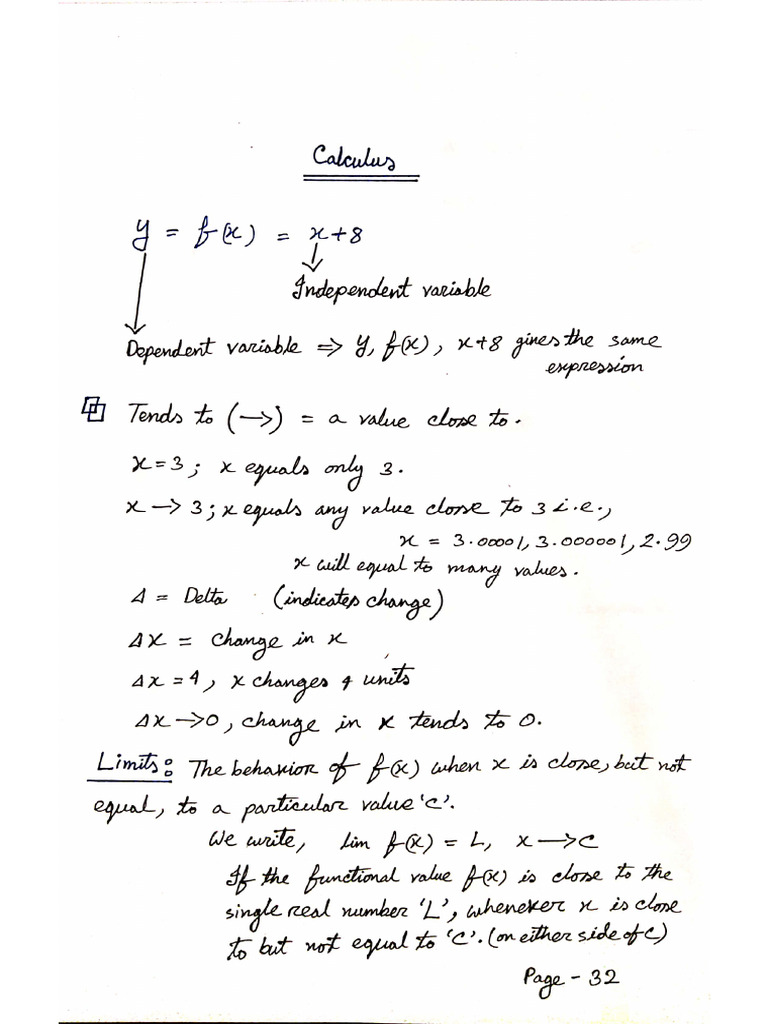 Calculus
y = f(x) = x+8
Independent variable
Dependent variable ⇒ y, f(x), x+8 gives the same
expression
Tends to (→) = a value close to.
x=3; x equals only 3.
x → 3; x equals any value close to 3 i.e.,
x = 3.00001, 3.000001, 2.99
x will equal to many values.
Δ = Delta (indicates change)
Δx = change in x
Δx = 4, x changes 4 units
Δx →0, change in x tends to 0.
Limits: The behavior of f(x) when x is close, but not
equal, to a particular value 'c'.
We write, lim f(x) = L, x → c
If the functional value f(x) is close to the
single real number 'L', whenever x is close
to but not equal to 'c'. (on either side of c)
Page - 32